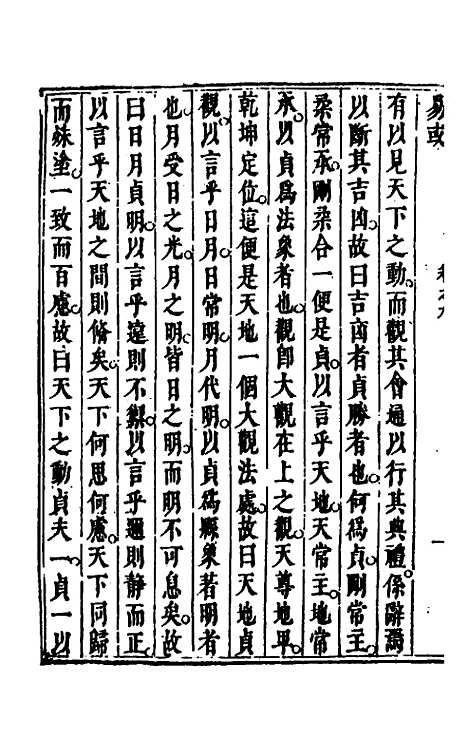 易或
卷之九
一
有以見天下之動而觀其會通以行其典禮係辭焉
以斷其吉凶故曰吉凶者貞勝者也何爲貞剛常主
柔常承剛柔合一便是貞以言乎天地天常主地常
承以貞爲法象者也觀卽大觀在上之觀天尊地卑
乾坤定位這便是天地一個大觀法處故曰天地貞
觀以言乎日月日常明月代明以貞爲縣象若明者
也月受日之光月之明皆日之明而明不可息矣故
曰日月貞明以言乎遠則不禦以言乎邇則静而正
以言乎天地之間則俻矣天下何思何慮天下同歸
而殊塗一致而百慮故曰天下之動貞夫一貞一以